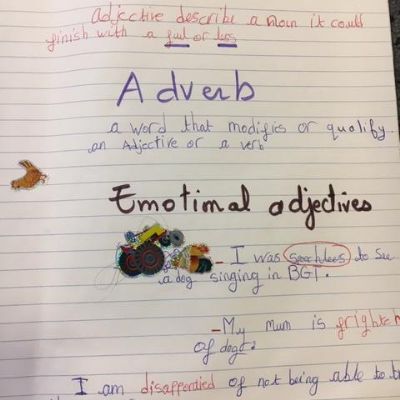 adjective describe a noun it could
finish with a ful or less
Adverb
a word that modifies or qualify
an Adjective or a verb
Emotimal adjectives
- I was to see
a dog singing in BGT.
- My mum is
of dogs
I am of not being able to